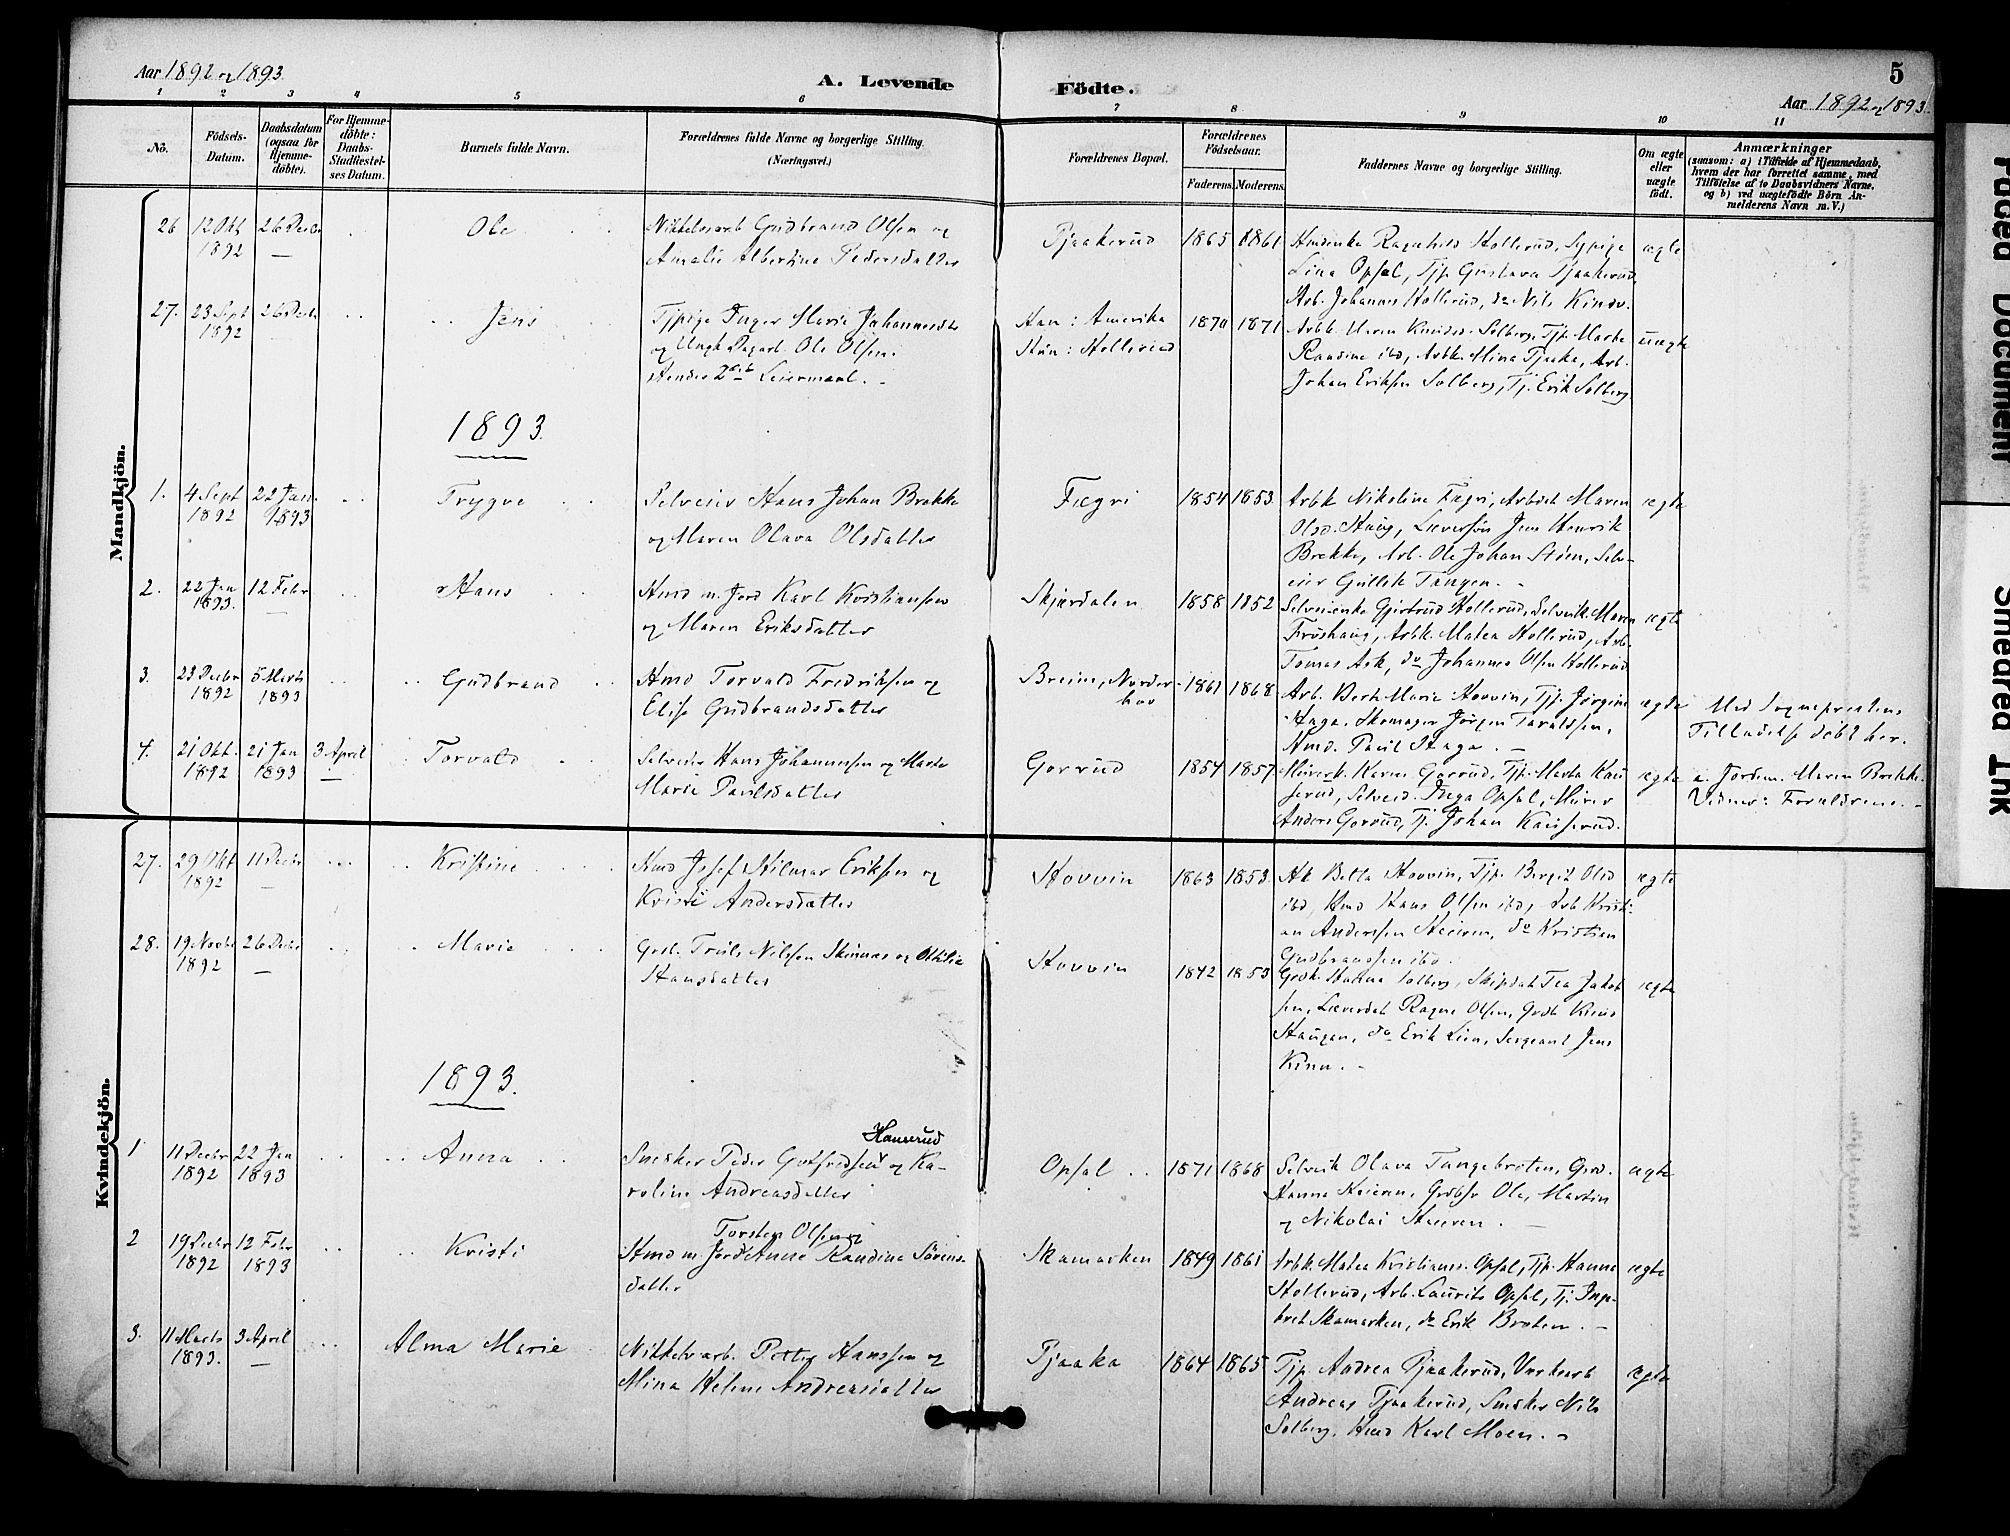 Aar 1892 og 1893
A. Levende Födte.
5
Aar 1892 og 1893
1 2 3 4 5 6 7 8 9 10 11
No.
Födsels-Datum.
Daabsdatum (ogsaa for Hjemme-döbte).
For Hjemme-döbte: Daabs-Stadfæstel-ses Datum.
Barnets fulde Navn.
Forældrenes fulde Navne og borgerlige Stilling. (Næringsvei.)
Forældrenes Bopæl.
Forældrenes Födselsaar.
Faderens. Moderens.
Faddernes Navne og borgerlige Stilling.
Om ægte eller uægte födt.
Anmærkninger
(saasom: a) i Tilfælde af Hjemmedaab,
hvem der har forrettet samme, med
Tilföielse af to Daabsvidners Navne,
og b) ved uægtefödte Börn An-
melderens Navn m. V.)
Mandkjön.
26 12 Okt 1892 26 Decbr Ole
Nikkelarb Gudbrand Olsen og
Amalie Albertine Pedersdatter
Tjaakerud 1865 1861
Hmdenke Ragnhild Hollerud, Sypige
Lina Opsal, Tjp. Gustava Tjaakerud,
Arb. Johannes Hollerud, do Nils Kindv.
ægte
27. 23 Sept 1892 26 Decbr Jens
Tjpige Inger Marie Johannesdtr
og Ungk Dagarb. Ole Olsen.
Hendes 2det Leiermaal.
Han: Amerika
Hun: Hollerud
1870 1871
Arbk. Maren Knudsd. Solberg, Tjp. Marte
Randine ibd, Arbk. Mina Tjaaka, Arb.
Johan Eriksen Solberg, Tj. Erik Solberg
uægte
1893.
1. 4 Sept 1892 22 Jan. 1893 Trygve
Selveier Hans Johan Brekke
og Maren Olava Olsdatter
Fægri 1854 1853
Arbk Nikoline Fægri, Arbdat Maren
Olsd. Haug, Lærersön Jens Henrik
Brekke, Arb. Ole Johan Stöen, Selv-
eier Gullik Tangen.
ægte
2. 22 Jan 1893. 12 Febr Hans
Hmd m. Jord Karl Kristiansen
og Maren Eriksdatter
Skjærdalen 1858 1852
Selveienke Gjertrud Hollerud, Selveik. Maren
Fröshaug, Arbk. Matea Hollerud, Arb.
Tomas Ask, do Johannes Olsen Hollerud
ægte
3. 23 Decbr 1892 5 Marts 1893 Gudbrand
Hmd Torvald Fredriksen og
Elise Gudbrandsdatter
Breien, Norder-
hov
1861 1868
Arb. Bert Marie Hovvin, Tjp. Jörgine
Haga, Skomager Jörgen Taraldsen,
Hmd. Paul Haga.
ægte
Med Sognepræstens
Tilladelse döbt her.
4. 21 Okt. 1892 21 Jan 1893 3 April Torvald
Selveier Hans Johannessen og Marte
Marie Paulsdatter
Gorrud 1854 1857
Murerk. Karen Gorrud, Tjp. Marta Kau
serud, Selveid. Inga Opsal, Murer
Anders Gorrud, Tj. Johan Kauserud.
ægte
a. Jordm. Maren Brekke.
Vidner: Forældrene.
Kvindekjön.
27. 29 Okt 1892 11 Decbr Kristine
Hmd Josef Hilmar Eriksen og
Kristi Andersdatter
Hovvin 1863 1853
Ak Betta Hovvin, Tjp. Bergit Olsd
ibd, Hmd Hans Olsen ibd, Arb Kristi-
an Anderssen Heieren, do Kristian
Gudbranssen ibd.
ægte
28. 19 Novbr 1892 26 Decbr Marie
Grdb. Truls Nilssen Skinnes og Othilie
Hansdatter
Hovvin 1842 1853
Grdk. Hanna Solberg, Skipdat Tea Jakob
sen, Lærerdat Ragna Olsen, Grdb Knud
Haugen, do Erik Lien, Sergeant Jens
Kinn.
ægte
1893.
1 11 Decbr 1892 22 Jan 1893 Anna
Hauserud
Snekker Peder Gotfredsen og Ka-
roline Andreasdatter
Opsal 1871 1868
Selveik Olava Tangebroten, Grd.
Hanna Heieren, Grdbsr Ole, Martin
og Nikolai Heieren.
ægte
2 19 Decbr 1892 12 Febr 1893 Kristi
Torsten Olsen og
Hmd m. Jord Anne Randine Sörens-
datter
Skamarken 1849 1861
Arbk Matea Kristians. Opsal, Tjp. Hanna
Hollerud, Arb. Laurits Opsal, Tj. Inge-
bret Skamarken, do Erik Broten.
ægte
3. 11 Marts 1893. 3 April Alma Marie
Nikkelvarb. Petter Hanssen og
Mina Helene Andreasdatter
Tjaaka 1864 1865
Tjp. Andrea Tjaakerud, Værksarb
Andreas Tjaakerud, Snekker Nils
Solberg, Hmd Karl Moen.
ægte
Faded Document
Smeared Ink